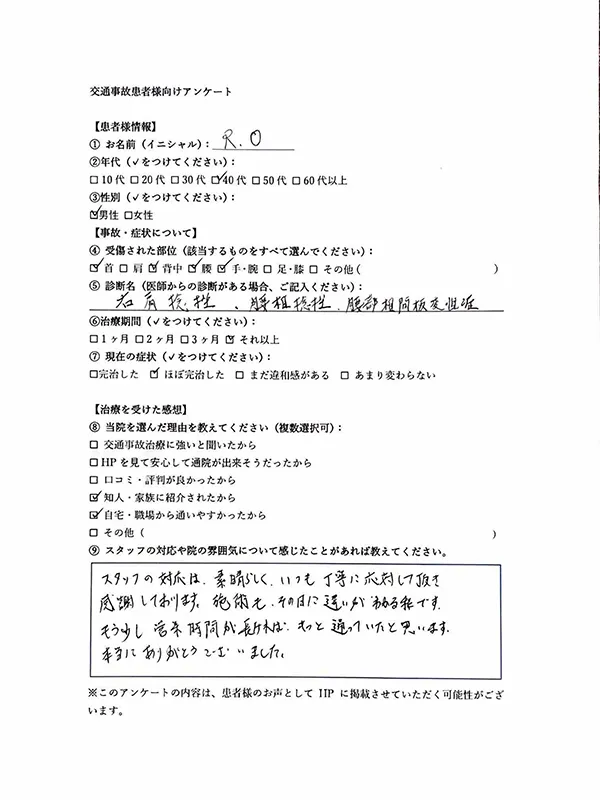 交通事故患者様向けアンケート
【患者様情報】
① お名前（イニシャル）： R. O
②年代（✓をつけてください）：
□10代 □20代 □30代 ☑40代 □50代 □60代以上
③性別（✓をつけてください）：
☑男性 □女性
【事故・症状について】
④ 受傷された部位（該当するものをすべて選んでください）：
☑首 □肩 ☑背中 ☑腰 ☑手・腕 □足・膝 □その他（ ）
⑤ 診断名（医師からの診断がある場合、ご記入ください）：
右肩捻挫、腰椎捻挫、腰部椎間板変性症
⑥治療期間（✓をつけてください）：
□1ヶ月 □2ヶ月 □3ヶ月 ☑それ以上
⑦ 現在の症状（✓をつけてください）：
□完治した ☑ほぼ完治した □まだ違和感がある □あまり変わらない
【治療を受けた感想】
⑧ 当院を選んだ理由を教えてください（複数選択可）：
□ 交通事故治療に強いと聞いたから
□HPを見て安心して通院が出来そうだったから
□ 口コミ・評判が良かったから
☑知人・家族に紹介されたから
☑自宅・職場から通いやすかったから
□ その他（ ）
⑨ スタッフの対応や院の雰囲気について感じたことがあれば教えてください。
スタッフの対応は、素晴らしく、いつも丁寧に応対して頂き
感謝しております。施術も、その日に違いがある程です。
もう少し営業時間が長ければ、もっと通っていたと思います。
本当にありがとうございました。
※このアンケートの内容は、患者様のお声として HP に掲載させていただく可能性がござ
います。